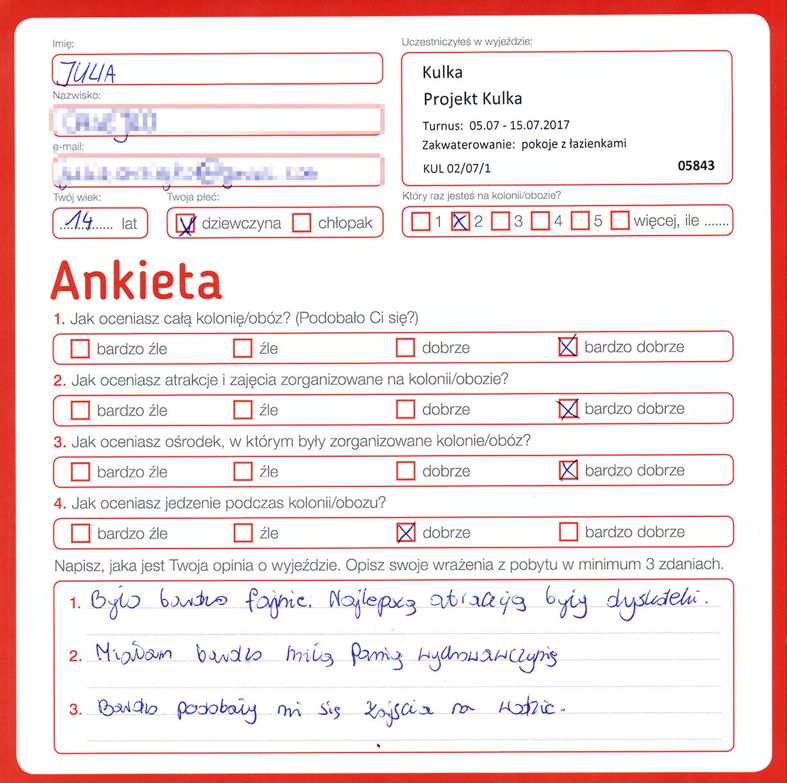 Imię:
JULIA
Nazwisko:
e-mail:
Twój wiek:
14 lat
Twoja płeć:
dziewczyna chłopak
Uczestniczyłeś w wyjeździe:
Kulka
Projekt Kulka
Turnus: 05.07 - 15.07.2017
Zakwaterowanie: pokoje z łazienkami
KUL 02/07/1 05843
Który raz jesteś na kolonii/obozie?
1 2 3 4 5 więcej, ile .......
Ankieta
1. Jak oceniasz całą kolonię/obóz? (Podobało Ci się?)
bardzo źle źle dobrze bardzo dobrze
2. Jak oceniasz atrakcje i zajęcia zorganizowane na kolonii/obozie?
bardzo źle źle dobrze bardzo dobrze
3. Jak oceniasz ośrodek, w którym były zorganizowane kolonie/obóz?
bardzo źle źle dobrze bardzo dobrze
4. Jak oceniasz jedzenie podczas kolonii/obozu?
bardzo źle źle dobrze bardzo dobrze
Napisz, jaka jest Twoja opinia o wyjeździe. Opisz swoje wrażenia z pobytu w minimum 3 zdaniach.
1. Było bardzo fajnie. Najlepszą atrakcją były dyskoteki.
2. Miałam bardzo miłą Panią wychowawczynię
3. Bardzo podobały mi się zajęcia na wodzie.